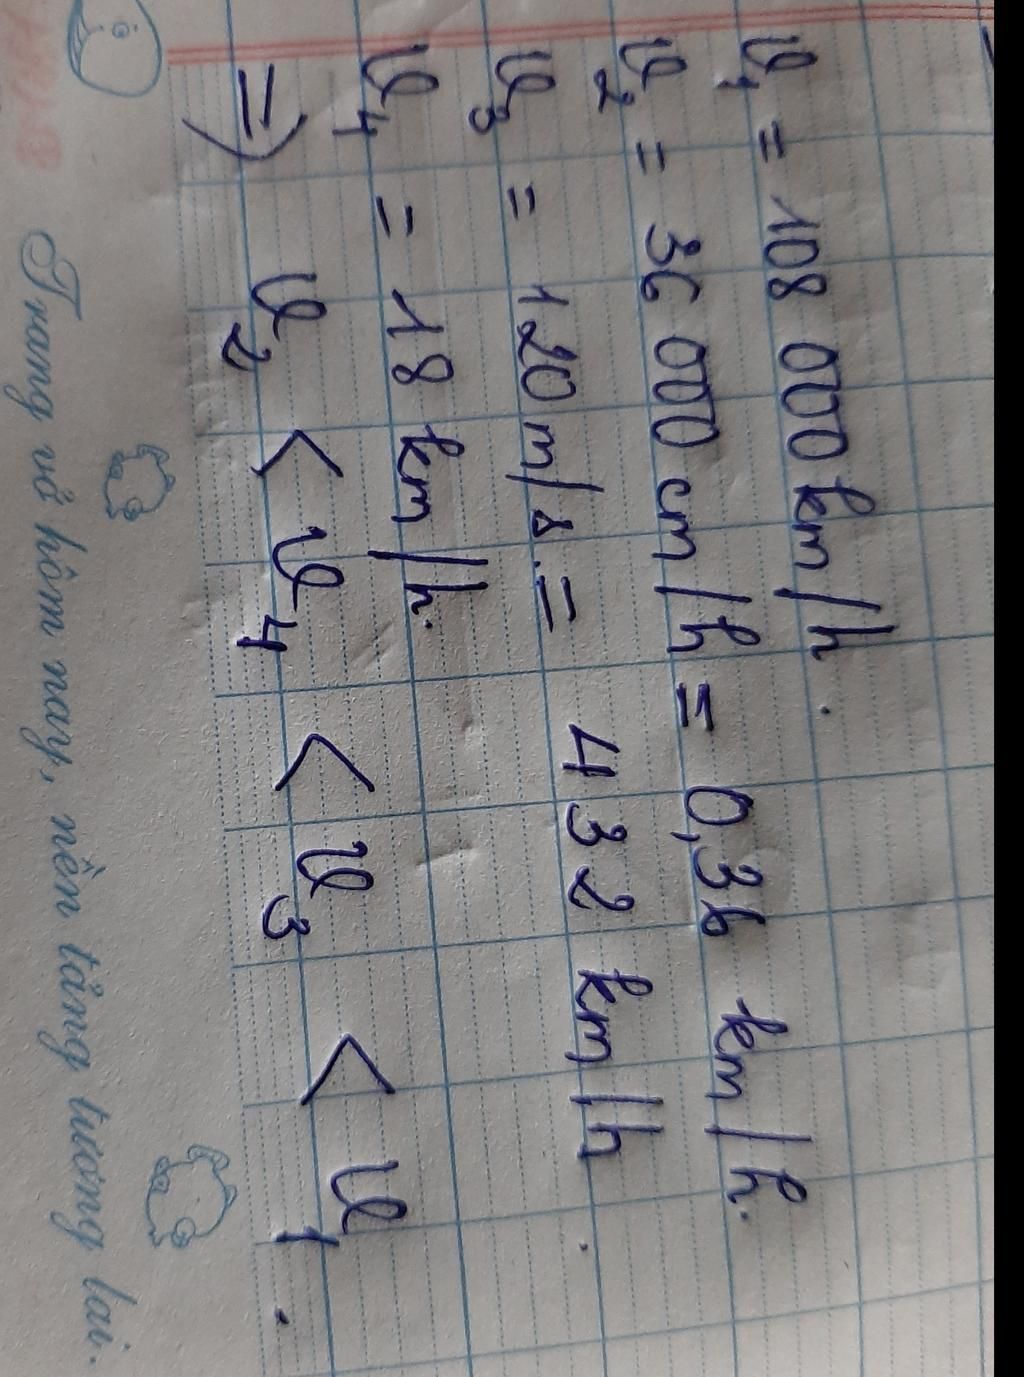 v₁ = 108 000 km/h.
v₂ = 36 000 cm/h = 0,36 km/h.
v₃ = 120 m/s. = 432 km/h.
v₄ = 18 km/h.
=> v₂ < v₄ < v₃ < v₁.
Trang vở hôm nay, nền tảng tương lai.